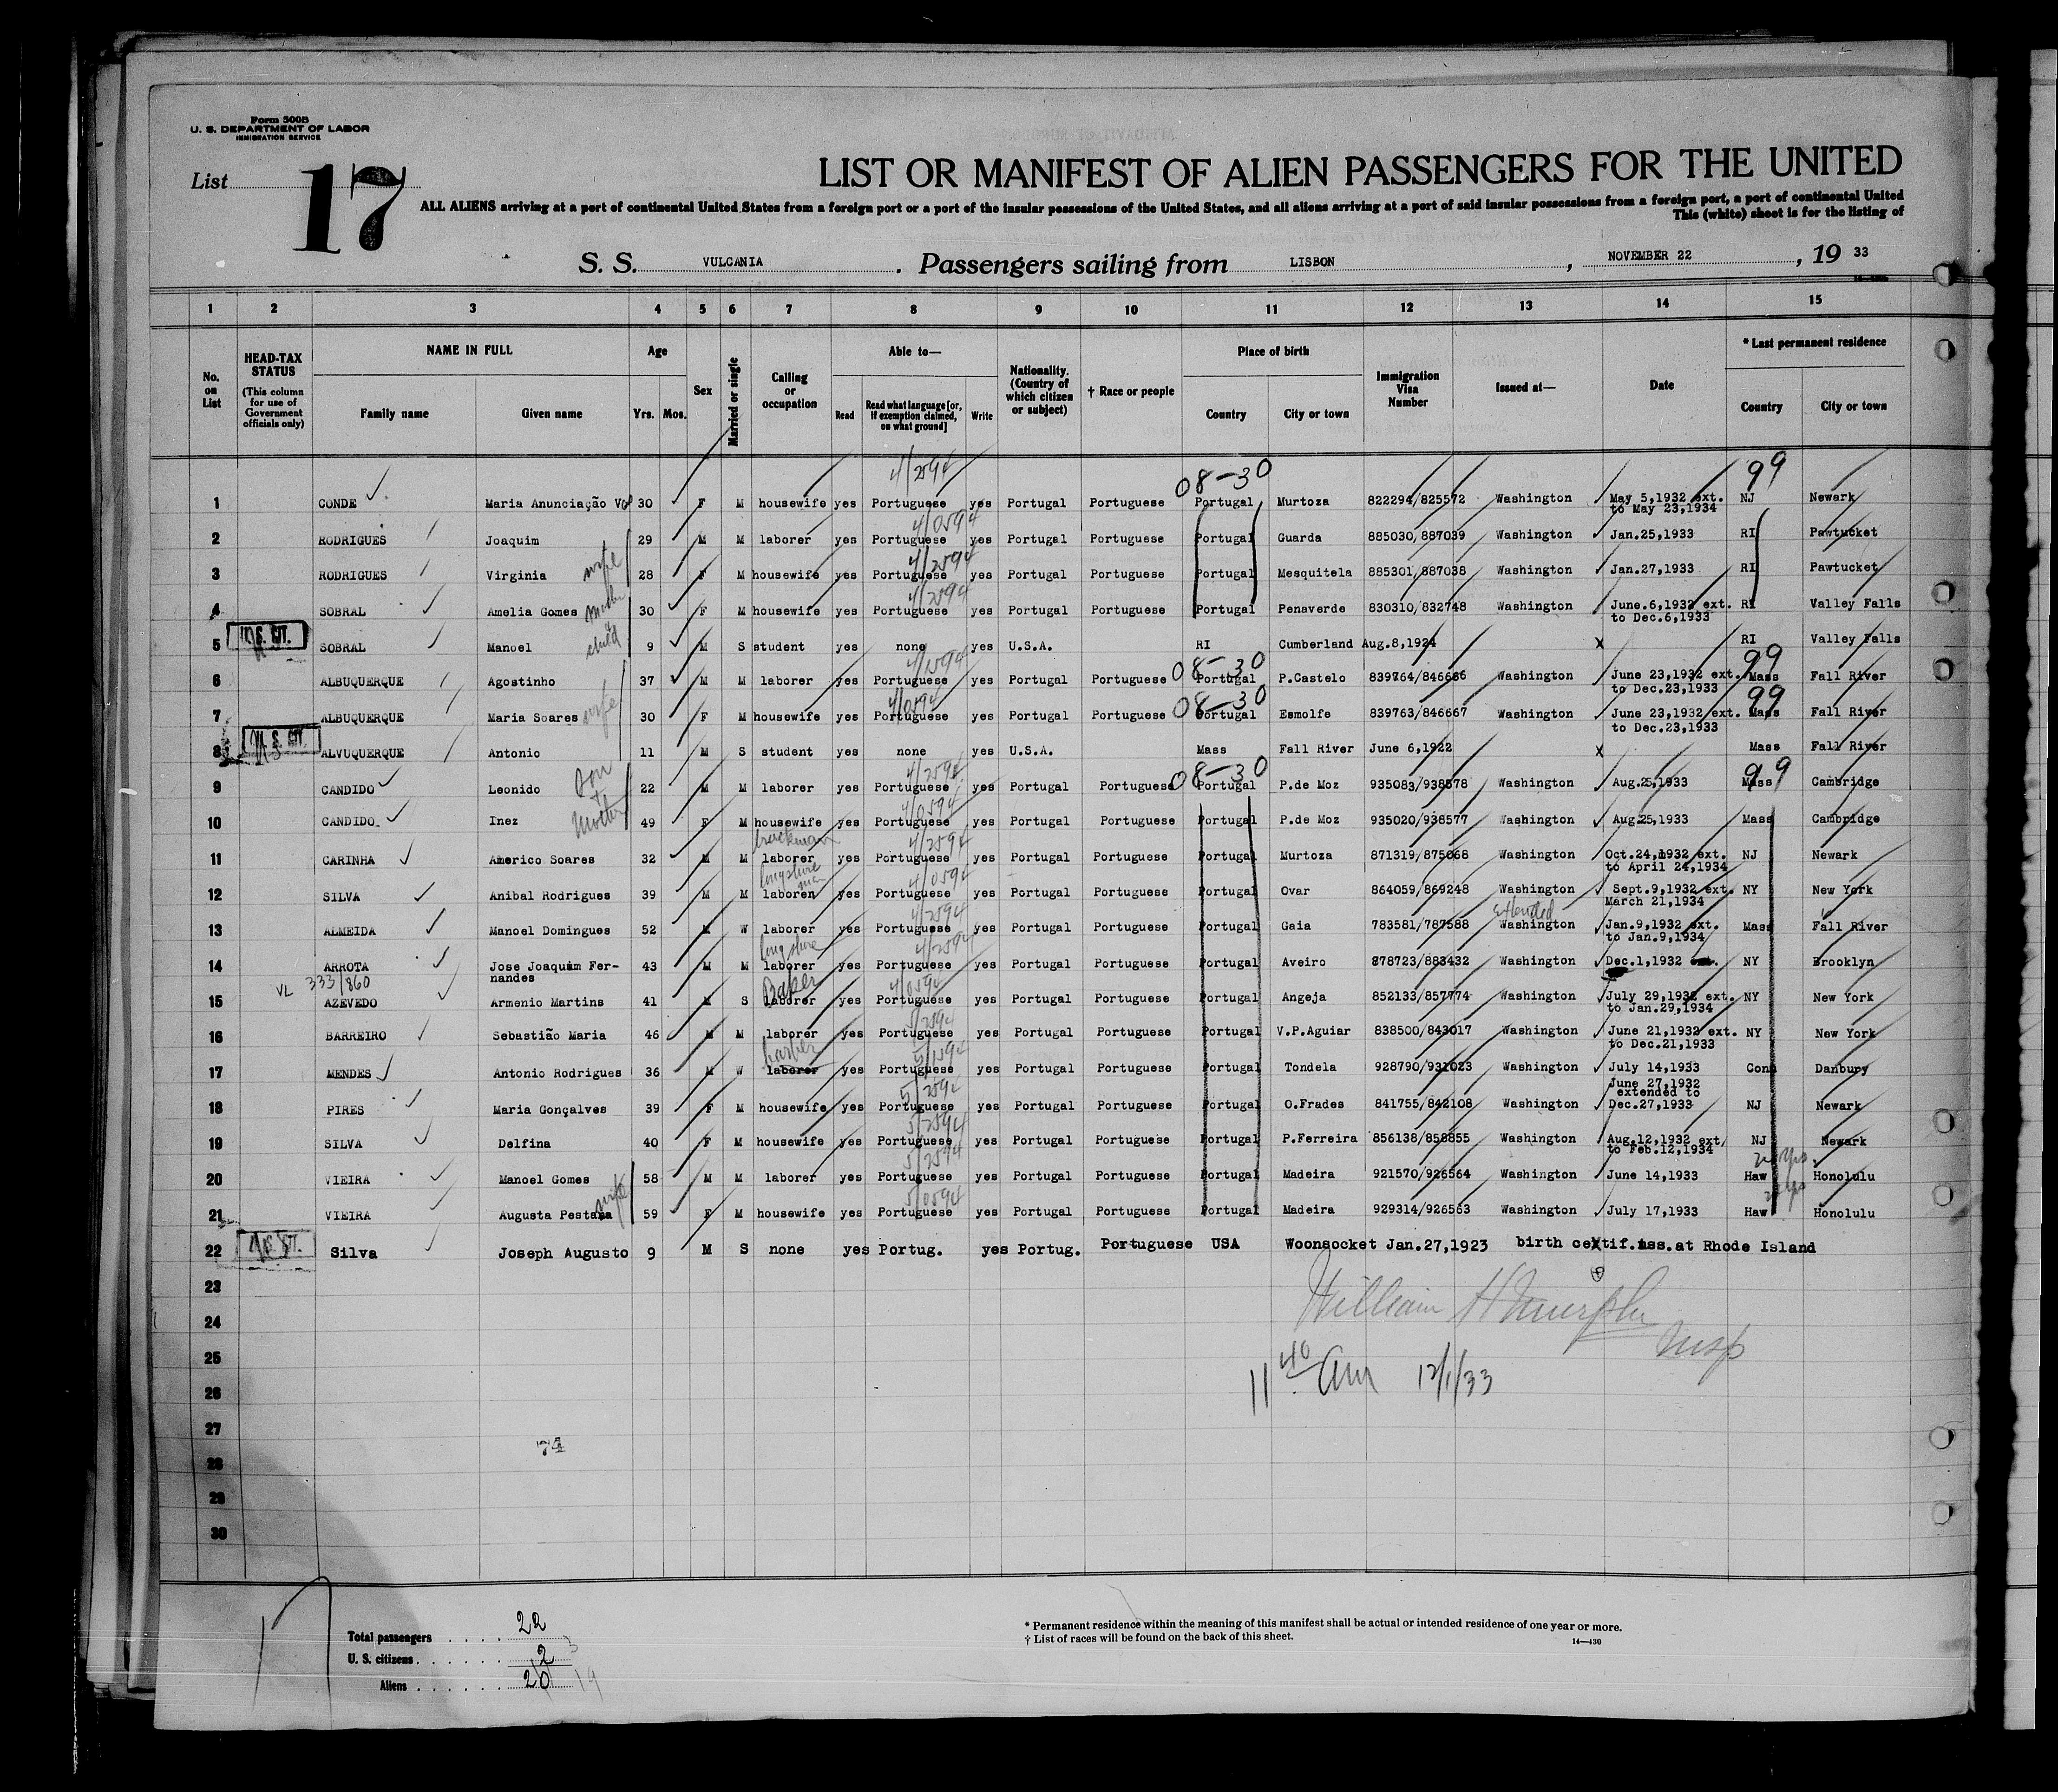 Form 500B
U. S. DEPARTMENT OF LABOR
IMMIGRATION SERVICE
List 17
LIST OR MANIFEST OF ALIEN PASSENGERS FOR THE UNITED
ALL ALIENS arriving at a port of continental United States from a foreign port or a port of the insular possessions of the United States, and all aliens arriving at a port of said insular possessions from a foreign port, a port of continental United
This (white) sheet is for the listing of
S. S. VULCANIA. Passengers sailing from LISBON, NOVEMBER 22, 19 33
1 2 3 4 5 6 7 8 9 10 11 12 13 14 15
No. on List
HEAD-TAX STATUS (This column for use of Government officials only)
NAME IN FULL Family name Given name
Age Yrs. Mos.
Sex
Married or single
Calling or occupation
Able to— Read Read what language [or, if exemption claimed, on what ground] Write
Nationality. (Country of which citizen or subject)
† Race or people
Place of birth Country City or town
Immigration Visa Number
Issued at—
Date
* Last permanent residence Country City or town
4/2594 08-30 99
1 CONDE Maria Anunciação 30 F M housewife yes Portuguese yes Portugal Portuguese Portugal Murtoza 822294/825572 Washington May 5,1932 ext. to May 23,1934 NJ Newark
4/0594
2 RODRIGUES Joaquim 29 M M laborer yes Portuguese yes Portugal Portuguese Portugal Guarda 885030/887039 Washington Jan.25,1933 RI Pawtucket
4/2594
3 RODRIGUES Virginia wife 28 F M housewife yes Portuguese yes Portugal Portuguese Portugal Mesquitela 885301/887038 Washington Jan.27,1933 RI Pawtucket
4/2594
4 SOBRAL Amelia Gomes Mother & 30 F M housewife yes Portuguese yes Portugal Portuguese Portugal Penaverde 830310/832748 Washington June.6,1932 ext. to Dec.6,1933 RI Valley Falls
5 U.S. CIT. SOBRAL Manoel child 9 M S student yes none yes U.S.A. RI Cumberland Aug.8,1924 X RI Valley Falls
4/2594 08-30 99
6 ALBUQUERQUE Agostinho 37 M M laborer yes Portuguese yes Portugal Portuguese Portugal P.Castelo 839764/846666 Washington June 23,1932 ext. to Dec.23,1933 Mass Fall River
4/0594 08-30 99
7 ALBUQUERQUE Maria Soares wife 30 F M housewife yes Portuguese yes Portugal Portuguese Portugal Esmolfe 839763/846667 Washington June 23,1932 ext. to Dec.23,1933 Mass Fall River
8 U.S. CIT. ALVUQUERQUE Antonio 11 M S student yes none yes U.S.A. Mass Fall River June 6,1922 X Mass Fall River
4/2594 08-30 99
9 CANDIDO Leonido son & 22 M M laborer yes Portuguese yes Portugal Portuguese Portugal P.de Moz 935083/938578 Washington Aug.25,1933 Mass Cambridge
4/0594
10 CANDIDO Inez Mother 49 F M housewife yes Portuguese yes Portugal Portuguese Portugal P.de Moz 935020/938577 Washington Aug.25,1933 Mass Cambridge
4/2594
11 CARINHA Americo Soares 32 M M laborer yes Portuguese yes Portugal Portuguese Portugal Murtoza 871319/875068 Washington Oct.24,1932 ext. to April 24,1934 NJ Newark
longshore man 4/0594
12 SILVA Anibal Rodrigues 39 M M laborer yes Portuguese yes Portugal Portuguese Portugal Ovar 864059/869248 Washington Sept.9,1932 ext. March 21,1934 NY New York
4/2594 extended
13 ALMEIDA Manoel Domingues 52 M W laborer yes Portuguese yes Portugal Portuguese Portugal Gaia 783581/787588 Washington Jan.9,1932 ext. to Jan.9,1934 Mass Fall River
longshore 4/2594
14 ARROTA Jose Joaquim Fernandes 43 M M laborer yes Portuguese yes Portugal Portuguese Portugal Aveiro 878723/883432 Washington Dec.1,1932 NY Brooklyn
VL 333/860 Baker 4/0594
15 AZEVEDO Armenio Martins 41 M S laborer yes Portuguese yes Portugal Portuguese Portugal Angeja 852133/857774 Washington July 29,1932 ext. to Jan.29,1934 NY New York
5/2594
16 BARREIRO Sebastião Maria 46 M M laborer yes Portuguese yes Portugal Portuguese Portugal V.P.Aguiar 838500/843017 Washington June 21,1932 ext. to Dec.21,1933 NY New York
barber 5/2594
17 MENDES Antonio Rodrigues 36 M W laborer yes Portuguese yes Portugal Portuguese Portugal Tondela 928790/931023 Washington July 14,1933 Conn Danbury
5/2594
18 PIRES Maria Gonçalves 39 F M housewife yes Portuguese yes Portugal Portuguese Portugal O.Frades 841755/842108 Washington June 27,1932 extended to Dec.27,1933 NJ Newark
5/2594
19 SILVA Delfina 40 F M housewife yes Portuguese yes Portugal Portuguese Portugal P.Ferreira 856138/858855 Washington Aug.12,1932 ext, to Feb.12,1934 NJ Newark
5/2594
20 VIEIRA Manoel Gomes 58 M M laborer yes Portuguese yes Portugal Portuguese Portugal Madeira 921570/926564 Washington June 14,1933 Haw Honolulu
5/0594
21 VIEIRA Augusta Pestana wife 59 F M housewife yes Portuguese yes Portugal Portuguese Portugal Madeira 929314/926563 Washington July 17,1933 Haw Honolulu
22 U.S. CIT. Silva Joseph Augusto 9 M S none yes Portug. yes Portug. Portuguese USA Woonsocket Jan.27,1923 birth certif.iss.at Rhode Island
23
24 William H Murphy
25 Insp
26 11 40 am 12/1/33
27
74
28
29
30
17
Total passengers 22
U. S. citizens 2 3
Aliens 20 19
* Permanent residence within the meaning of this manifest shall be actual or intended residence of one year or more.
† List of races will be found on the back of this sheet.
14—430